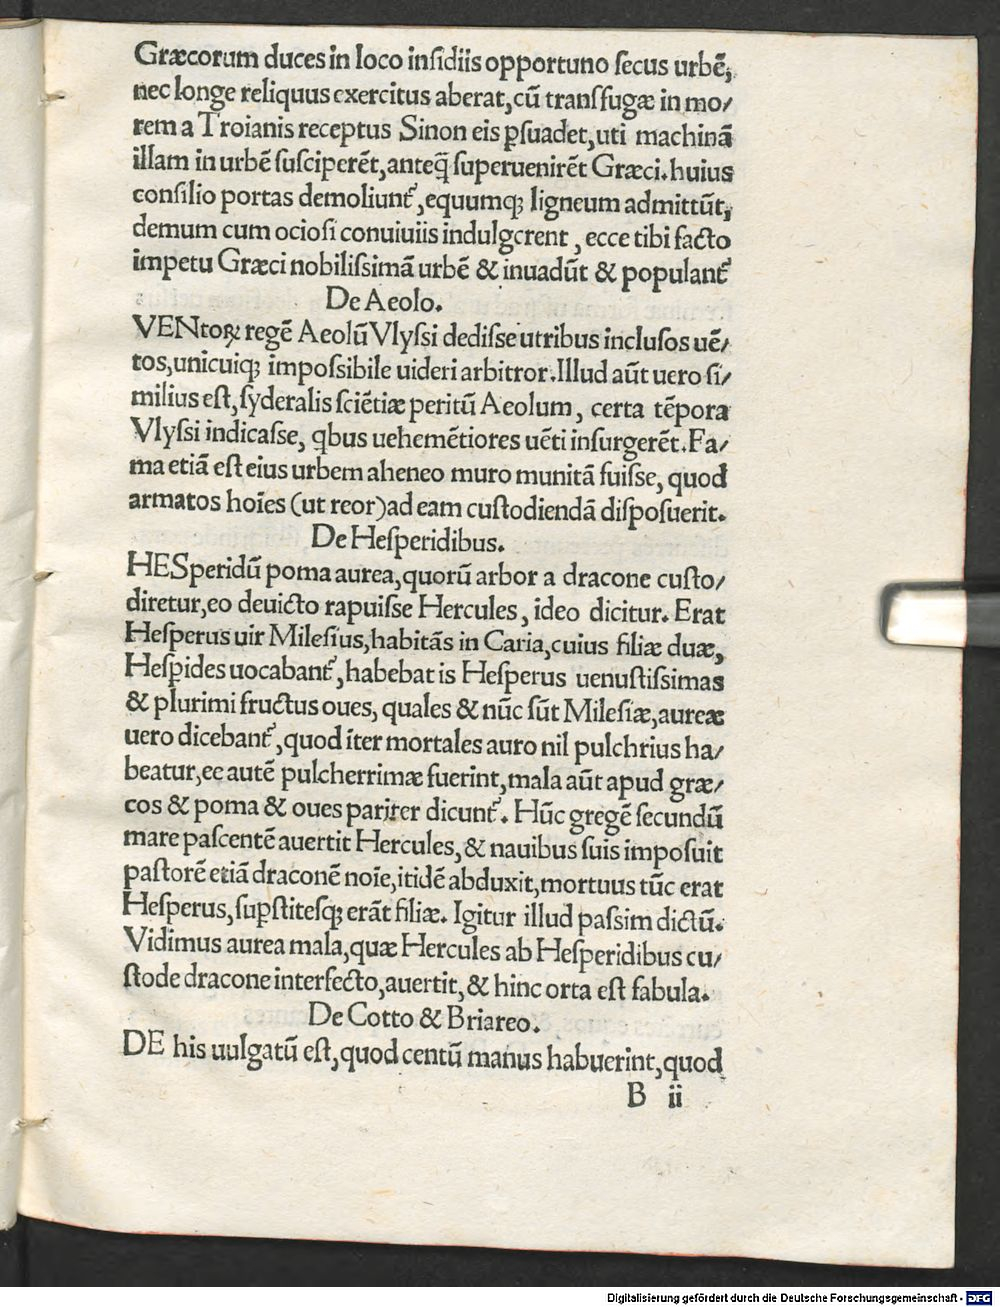 Græcorum duces in loco inſidiis opportuno ſecus urbē,
nec longe reliquus exercitus aberat,cū tranſfugæ in mo/
rem a Troianis receptus Sinon eis ꝑſuadet,uti machinā
illam in urbē ſuſciperēt,anteq̄ ſuperuenirēt Græci.huius
conſilio portas demoliunt᷑,equumqꝫ ligneum admittūt,
demum cum ocioſi conuiuiis indulgerent, ecce tibi facto
impetu Græci nobiliſsimā urbē & inuadūt & populant᷑
De Aeolo.
VENtoꝝ regē Aeolū Vlyſsi dediſse utribus incluſos uē/
tos,unicuiqꝫ impoſsibile uideri arbitror.Illud aūt uero ſi/
milius eſt,ſyderalis ſciētiæ peritū Aeolum, certa tēpora
Vlyſsi indicaſse, qbus uehemētiores uēti inſurgerēt.Fa/
ma etiā eſt eius urbem aheneo muro munitā fuiſse, quod
armatos hoīes (ut reor)ad eam cuſtodiendā diſpoſuerit.
De Heſperidibus.
HESperidū poma aurea,quorū arbor a dracone cuſto/
diretur,eo deuicto rapuiſse Hercules, ideo dicitur. Erat
Heſperus uir Mileſius,habitās in Caria,cuius filiæ duæ,
Heſꝑides uocabant᷑,habebat is Heſperus uenuſtiſsimas
& plurimi fructus oues, quales & nūc ſūt Mileſiæ,aureæ
uero dicebant᷑,quod īter mortales auro nil pulchrius ha/
beatur,ee autē pulcherrimæ fuerint,mala aūt apud græ/
cos & poma & oues pariter dicunt᷑. Hūc gregē ſecundū
mare paſcentē auertit Hercules,& nauibus ſuis impoſuit
paſtorē etiā draconē noīe,itidē abduxit,mortuus tūc erat
Heſperus,ſuꝑſtiteſqꝫ erāt filiæ. Igitur illud paſsim dictū.
Vidimus aurea mala,quæ Hercules ab Heſperidibus cu/
ſtode dracone interfecto,auertit,& hinc orta eſt fabula.
De Cotto & Briareo.
DE his uulgatū eſt,quod centū manus habuerint,quod
B ii
Digitalisierung gefördert durch die Deutsche Forschungsgemeinschaft - DFG